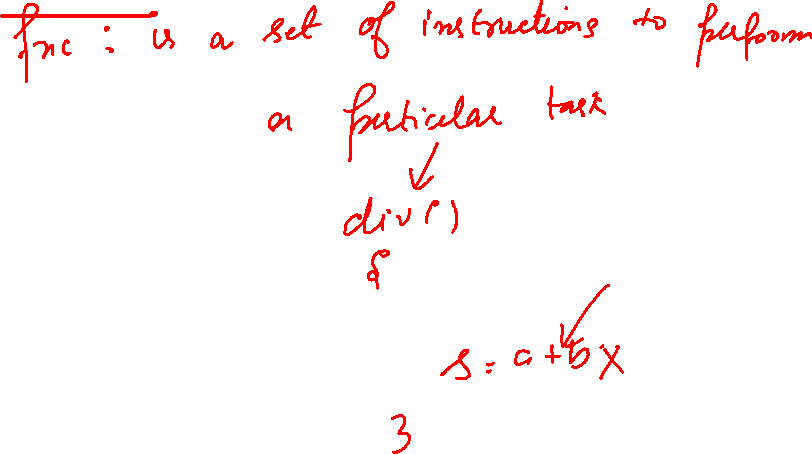 fnc : is a set of instructions to perform
a particular task
div()
{
s = a + b X
}